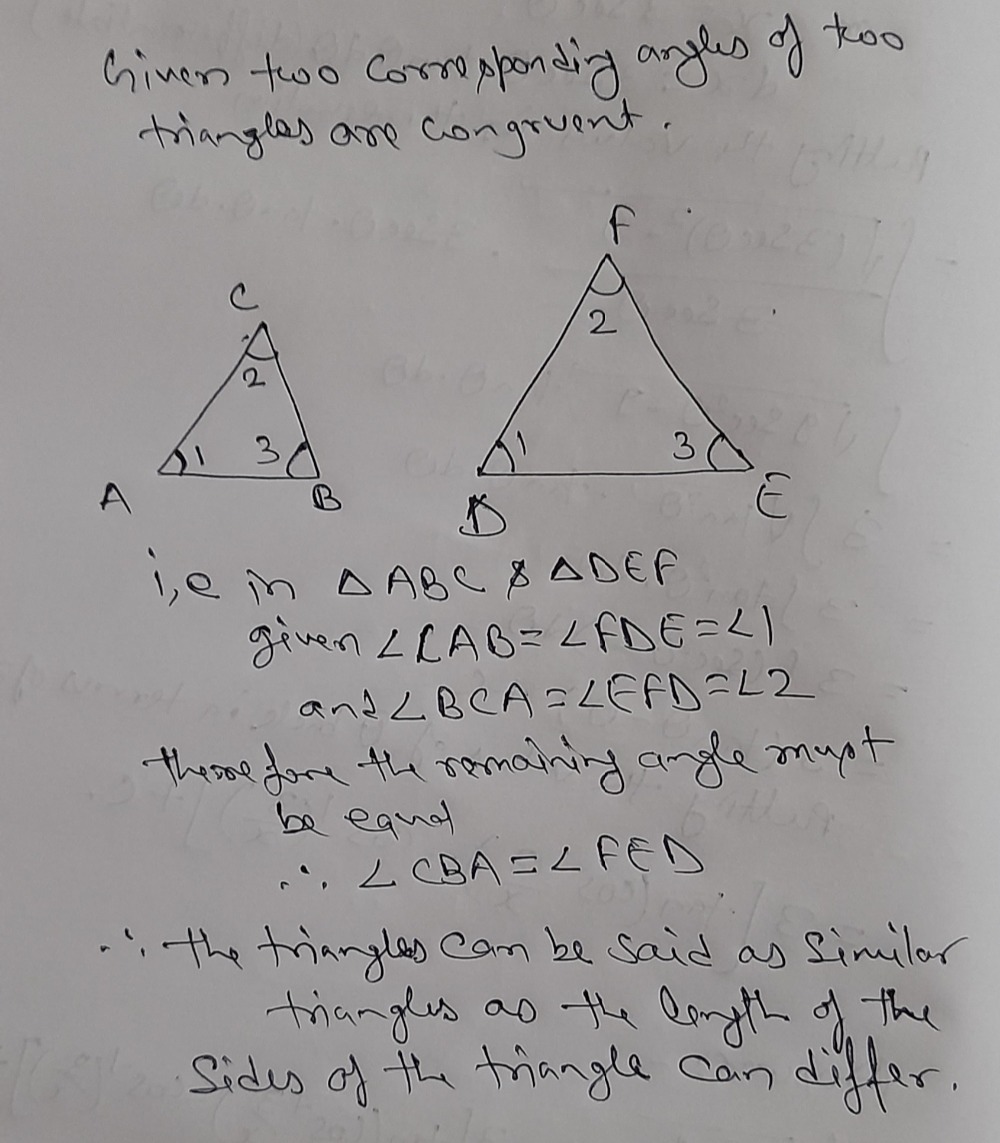 Given two corresponding angles of two
triangles are congruent.
F
C
2
2
1 3
1 3
A B
D E
i,e in △ABC & △DEF
given ∠CAB=∠FDE=∠1
and ∠BCA=∠EFD=∠2
therefore the remaining angle must
be equal
∴ ∠CBA=∠FED
∴ the triangles can be said as similar
triangles as the length of the
sides of the triangle can differ.